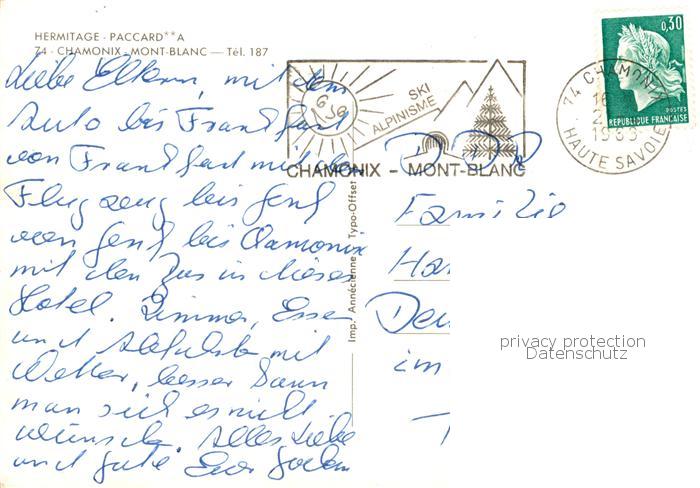 HERMITAGE - PACCARD**A
74 - CHAMONIX - MONT-BLANC — Tél. 187
Liebe Eltern, mit dem
Auto bis Frankfurt
von Frankfurt mit dem
Flugzeug bis Genf
von Genf bis Chamonix
mit den Bus in dieses
Hotel. Zimmer, Essen
und
mit
Wetter, besser kann
man sich es nicht
wünschen. Alles Liebe
und Gute Euer
SKI
ALPINISME
CHAMONIX - MONT-BLANC
74 CHAMONIX
16
HAUTE SAVOIE
0,30
POSTES
REPUBLIQUE FRANÇAISE
DDR
Familie
Ha
im
Imp. Annécienne - Typo-Offset
privacy protection
Datenschutz